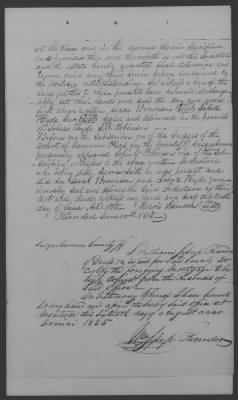 at the time and in the manner therein specified
and provided they and thenceforth as well this Indenture
and the estate hereby granted shall determine and
become void any thing herein before contained to
the contrary notwithstanding. In witness whereof the
said parties to these presents have hereunto interchange-
ably set their hands and seals the day and year
first above written. Isaac Brownson [Seal] Jabez
Hyde Jun [Seal] Sealed and delivered in the presence
of Jabez Hyde
Before me the subscriber one of the Judges of the
Court of Common Pleas for the County of Susquehanna
personally appeared
who being duly sworn saith he was present and
did see Isaac Brownson and Jabez Hyde Jun
severally seal and deliver the above Indenture as their
Act and deed. Witness my hand and seal this
day of June AD 1815. Davis Dimock [Seal]
Recorded June 1815

Susquehanna County ss
I William Jessup Recorder
of Deeds &c in and for said County do
certify the foregoing Mortgage to be
truly copied from the records of
said office.
In testimony whereof I have hereunto
set my hand and affixed the seal of said office at
Montrose this sixteenth day of August anno
Domini 1825
Wm Jessup Recorder